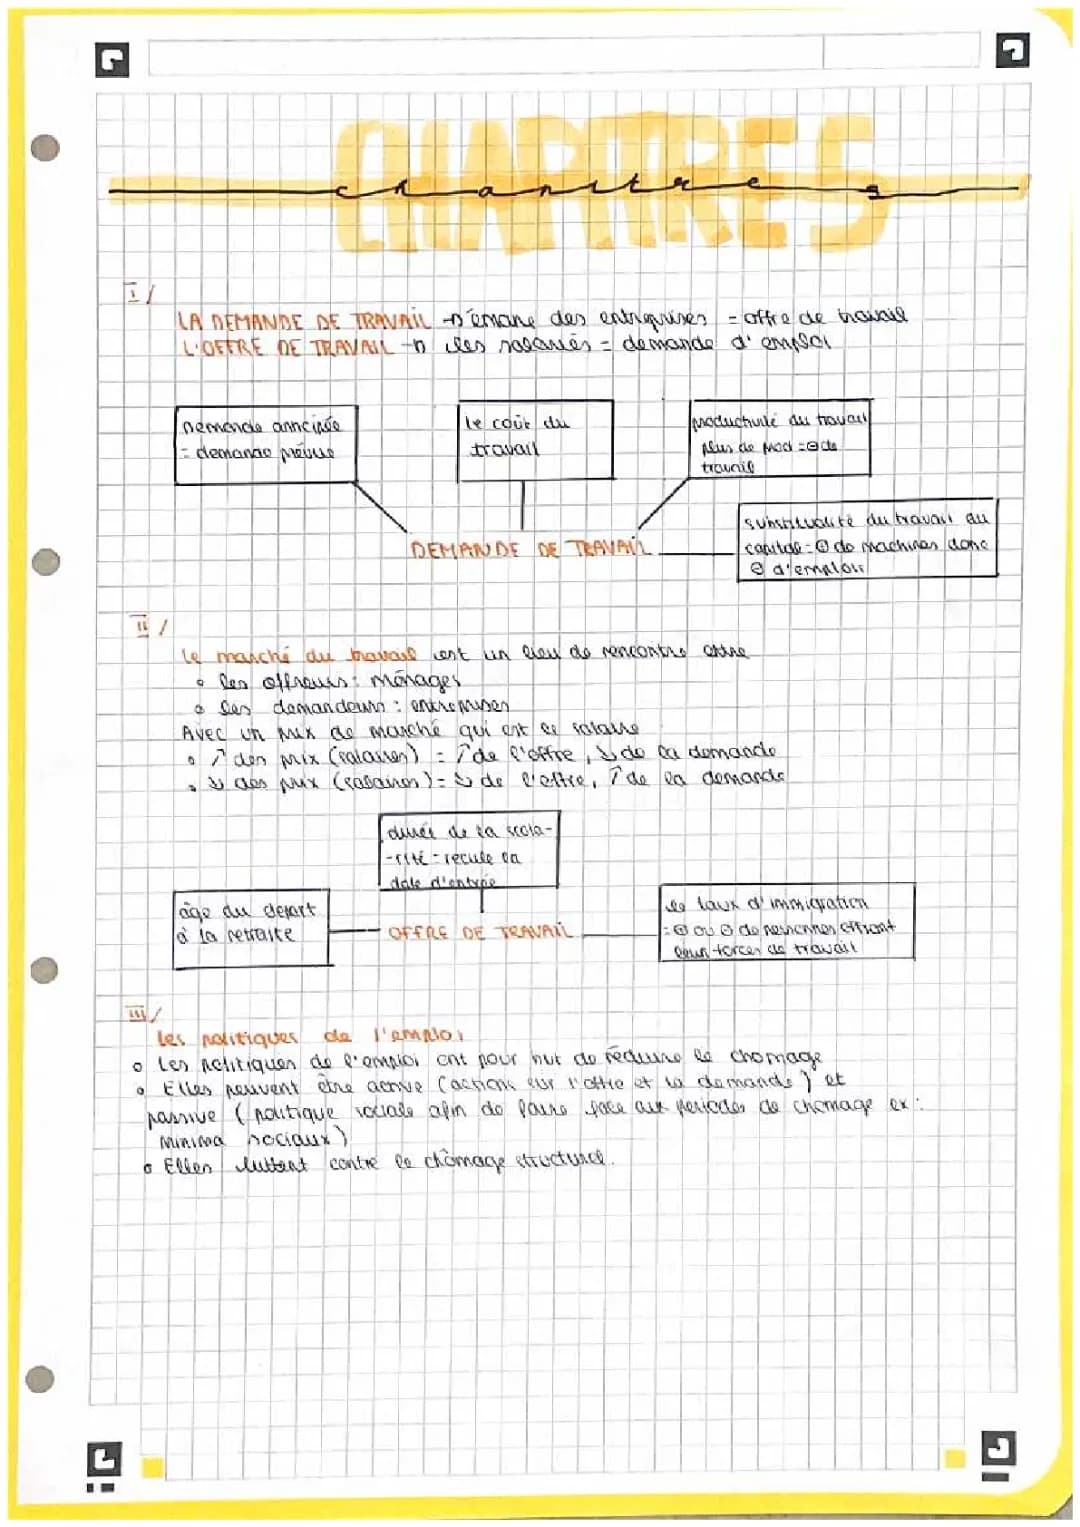 CHAPITRE 5
chapitre 5
I/
LA DEMANDE DE TRAVAIL → émane des entreprises = offre de travail
L'OFFRE DE TRAVAIL → les salariés = demande d'emploi
Demande anncipée
= demande prévue
le coût du
travail
productivité du travail
plus de prod = ⊖ de
travail
substitualité du travail au
capital = ⊕ de machines donc
⊖ d'emplois
DEMANDE DE TRAVAIL
II/
Le marché du travail est un lieu de rencontre entre
• les offreurs : ménages
• les demandeurs : entreprises
Avec un prix de marché qui est le salaire
• ↗ des prix (salaires) = ↑ de l'offre, ↘ de la demande
• ↘ des prix (salaires) = ↘ de l'offre, ↑ de la demande
durée de la scola-
-rité = recule la
date d'entrée
âge du depart
à la retraite
OFFRE DE TRAVAIL
le taux d'immigration
= ⊕ ou ⊖ de personnes offrant
leur forces de travail
III/
Les politiques de l'emploi
o Les politiques de l'emploi ont pour but de réduire le chomage
o Elles peuvent être active (actions sur l'offre et la demande) et
passive (politique sociale afin de faire face aux periodes de chomage ex :
minima sociaux)
o Elles luttent contre le chômage structurel.